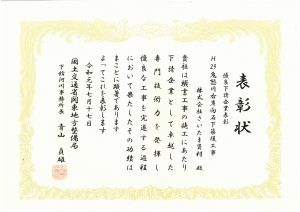 表彰状
優良下請企業表彰
H29鬼怒川右岸向石下築堤工事
株式会社さいたま資材 殿
貴社は頭書工事の施工にあたり
下請企業として卓越した
専門技術力を発揮し
優良な工事を完遂する過程
において果たしたその功績は
まことに顕著であります
よってこれを表彰します
令和元年七月十七日
国土交通省関東地方整備局
下館河川事務所長
青山貞雄